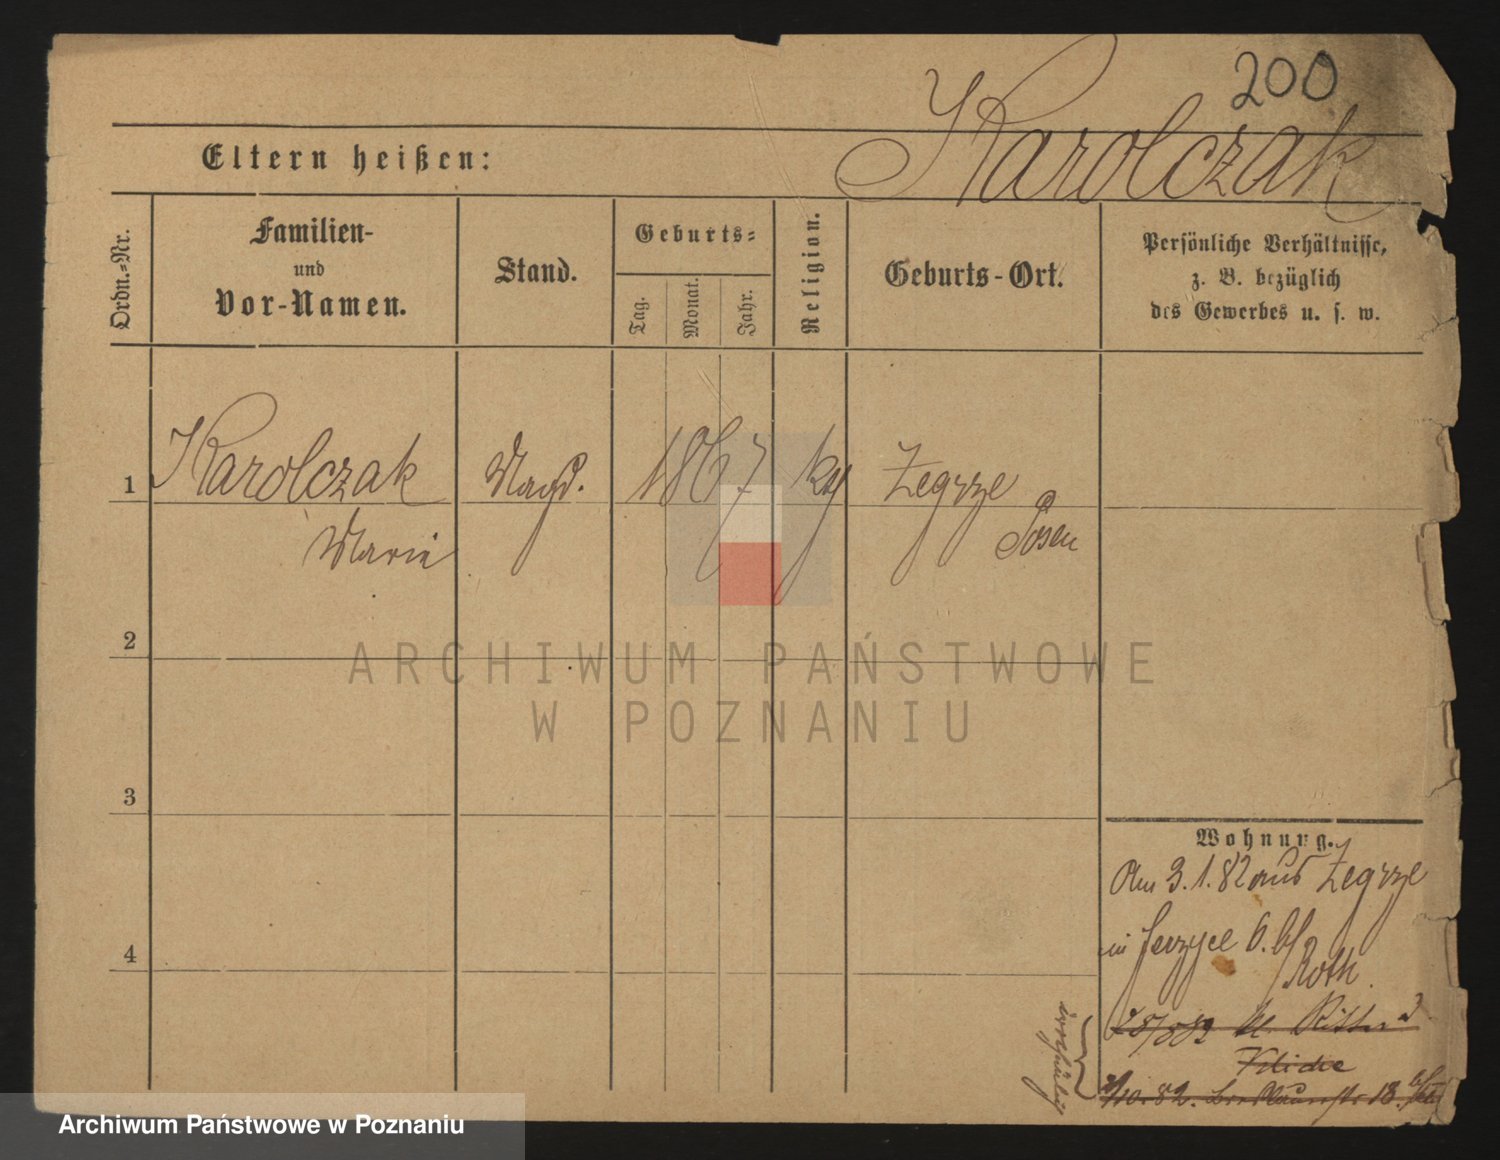 200
Karolczak
Eltern heißen:
Ordn.-Nr.
Familien-
und
Vor-Namen.
Stand.
Geburts-
Tag.
Monat.
Jahr.
Religion.
Geburts-Ort.
Persönliche Verhältnisse,
z. B. bezüglich
des Gewerbes u. s. w.
1 Karolczak Magd. 1867 Zegrze
Marie Posen
2
3
4
Wohnung.
Am 3.1.82 aus Zegrze
in Jerzyce 6. b/
Roth.
Ritter
Filidie
10.82. 13.
irrthüml.
ARCHIWUM PAŃSTWOWE
W POZNANIU
Archiwum Państwowe w Poznaniu